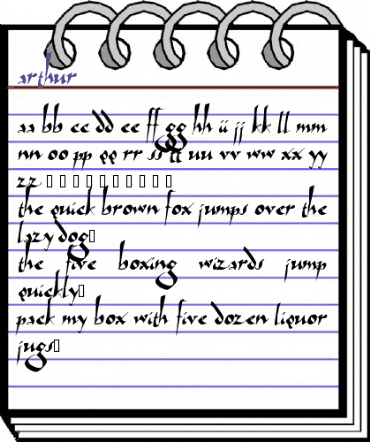 arthur
aa bb cc dd ee ff gg hh ii jj kk ll mm
nn oo pp qq rr ss tt uu vv ww xx yy
zz □ □ □ □ □ □ □ □ □ □
the quick brown fox jumps over the
lazy dog□
the five boxing wizards jump
quickly□
pack my box with five dozen liquor
jugs□